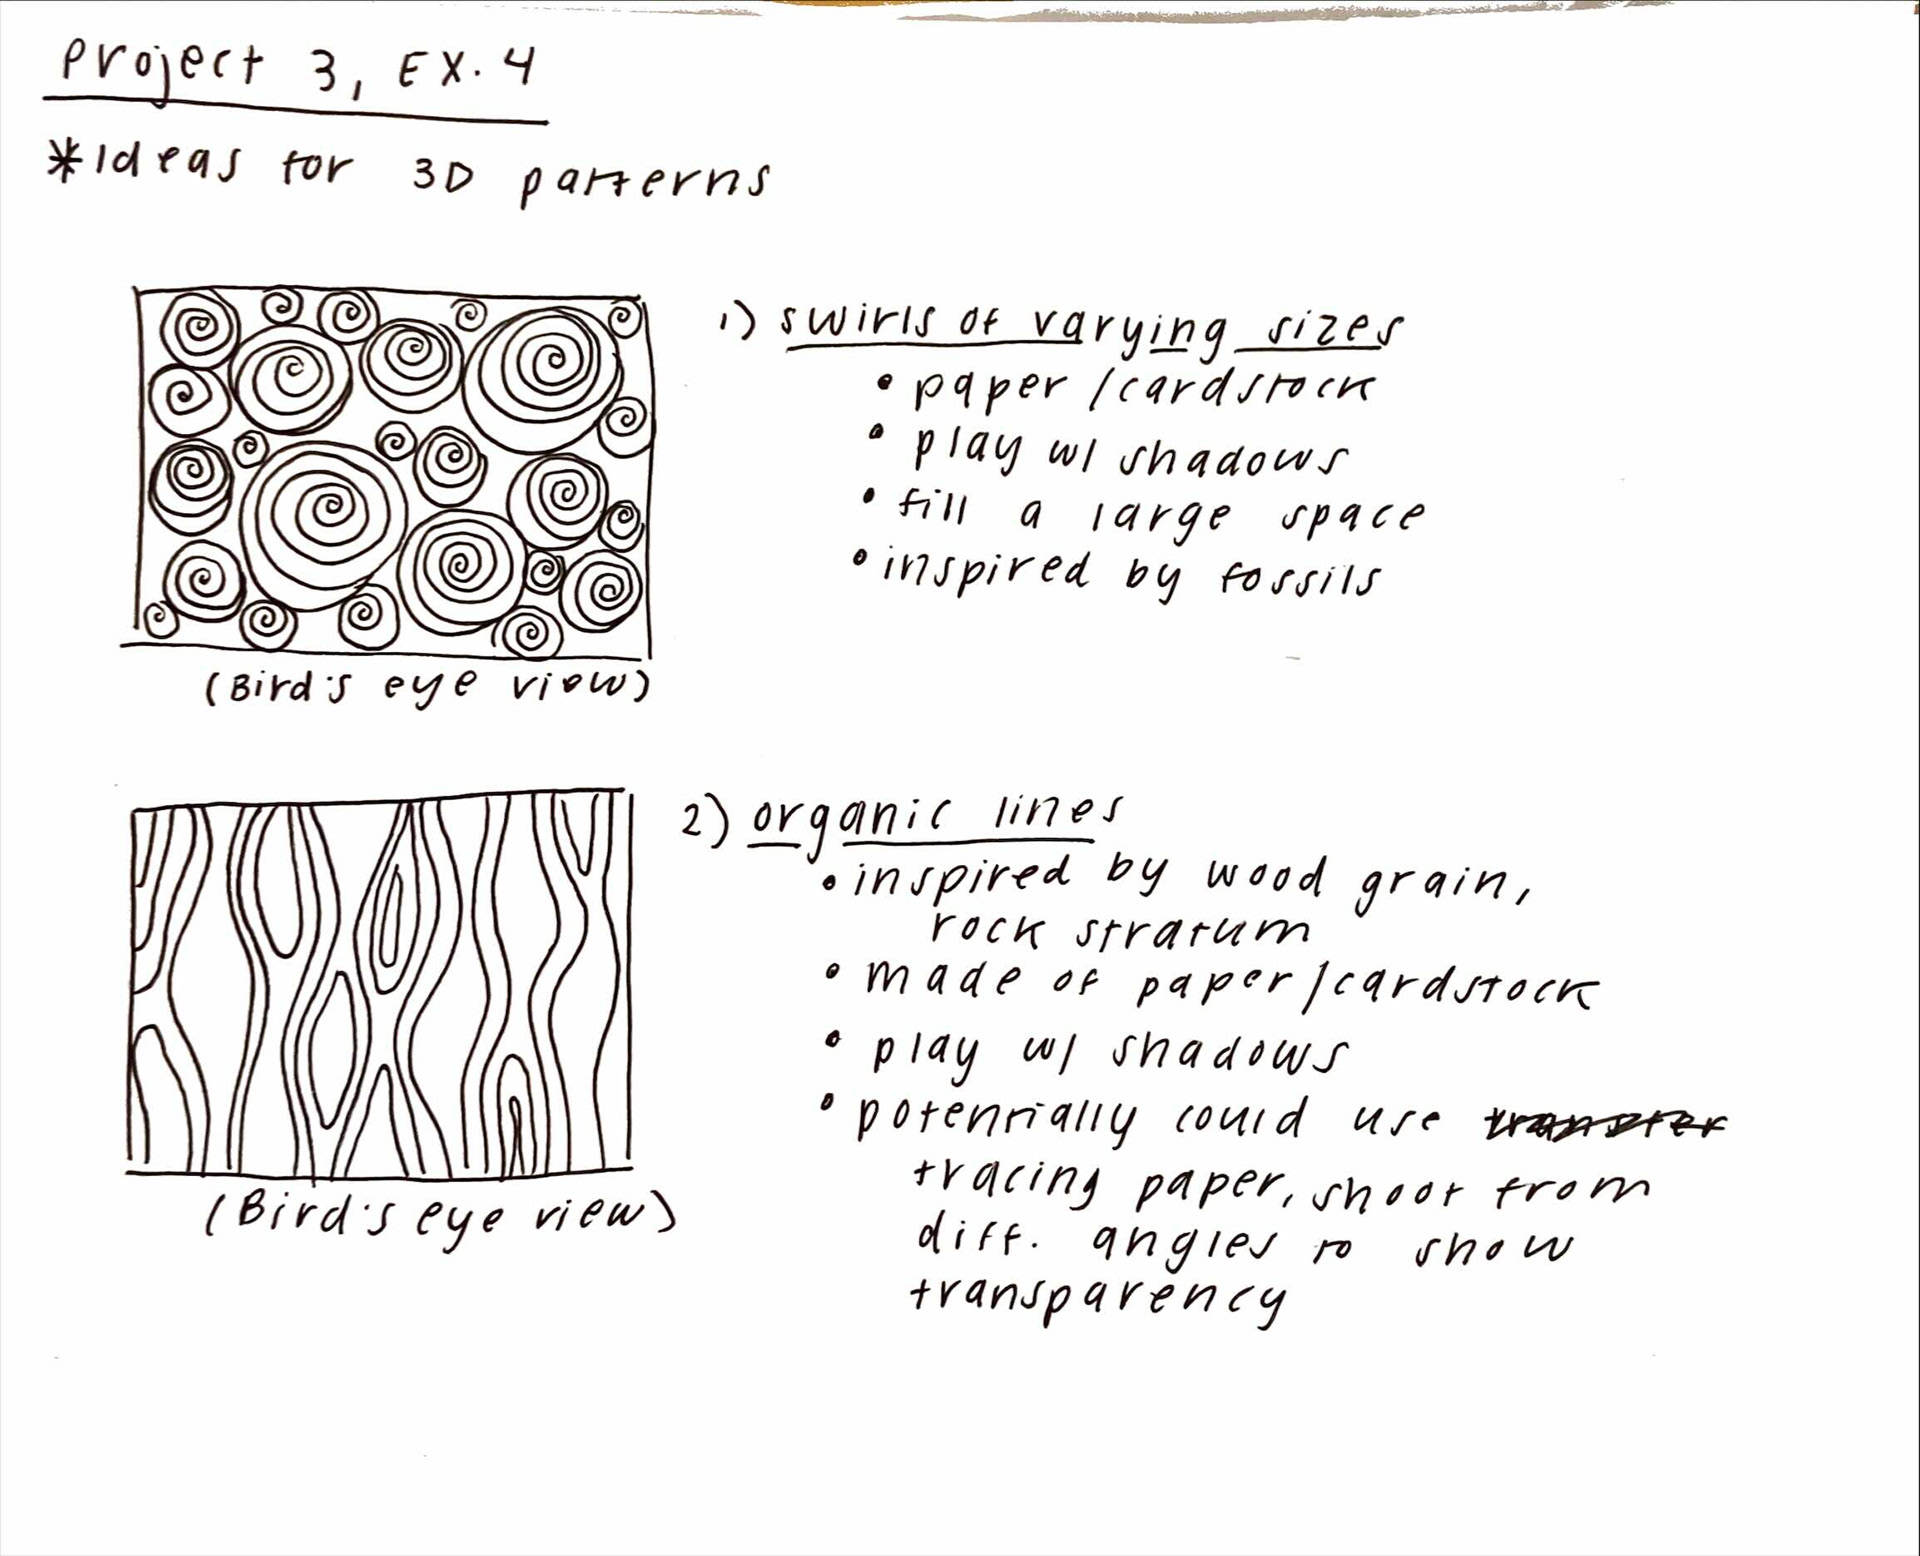 Project 3, EX. 4
*Ideas for 3D patterns
1) swirls of varying sizes
• paper/cardstock
• play w/ shadows
• fill a large space
• inspired by fossils
(Bird's eye view)
2) organic lines
• inspired by wood grain,
rock stratum
• made of paper/cardstock
• play w/ shadows
• potentially could use transfer
tracing paper, shoot from
diff. angles to show
transparency
(Bird's eye view)